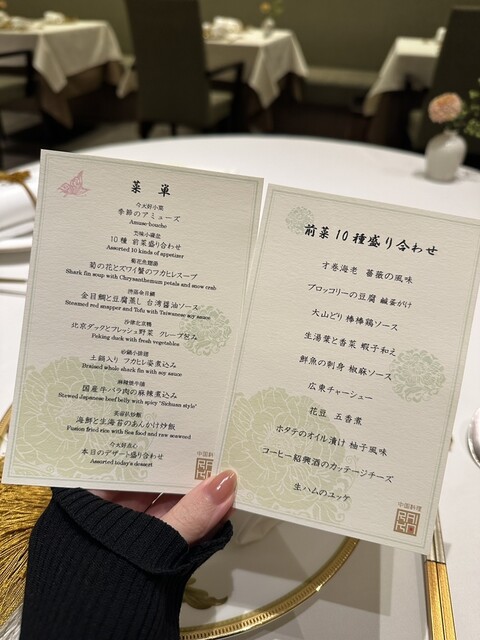 菜單
季節のアミューズ
Amuse-bouche
10種 前菜盛り合わせ
Assorted 10 kinds of appetizer
菊の花とズワイ蟹のフカヒレスープ
Shark fin soup with Chrysanthemum petals and snow crab
金目鯛と豆腐蒸し 台湾醤油ソース
Steamed red snapper and Tofu with Taiwanese soy sauce
北京ダックとフレッシュ野菜 クレープ包み
Peking duck with fresh vegetables
土鍋入り フカヒレ姿煮込み
Braised whole shark fin with soy sauce
麻辣燉牛腩
国産牛バラ肉の麻辣煮込み
Stewed Japanese beef belly with spicy "Sichuan style"
海鮮と生海苔のあんかけ炒飯
Fusion fried rice with Sea food and raw seaweed
本日のデザート盛り合わせ
Assorted today's dessert
中国料理
前菜10種盛り合わせ
才巻海老 薔薇の風味
ブロッコリーの豆腐 鹹蛋がけ
大山どり 棒棒鶏ソース
生湯葉と香菜 蝦子和え
鮮魚の刺身 椒麻ソース
広東チャーシュー
花豆 五香煮
ホタテのオイル漬け 柚子風味
コーヒー紹興酒のカッテージチーズ
生ハムのユッケ
中国料理